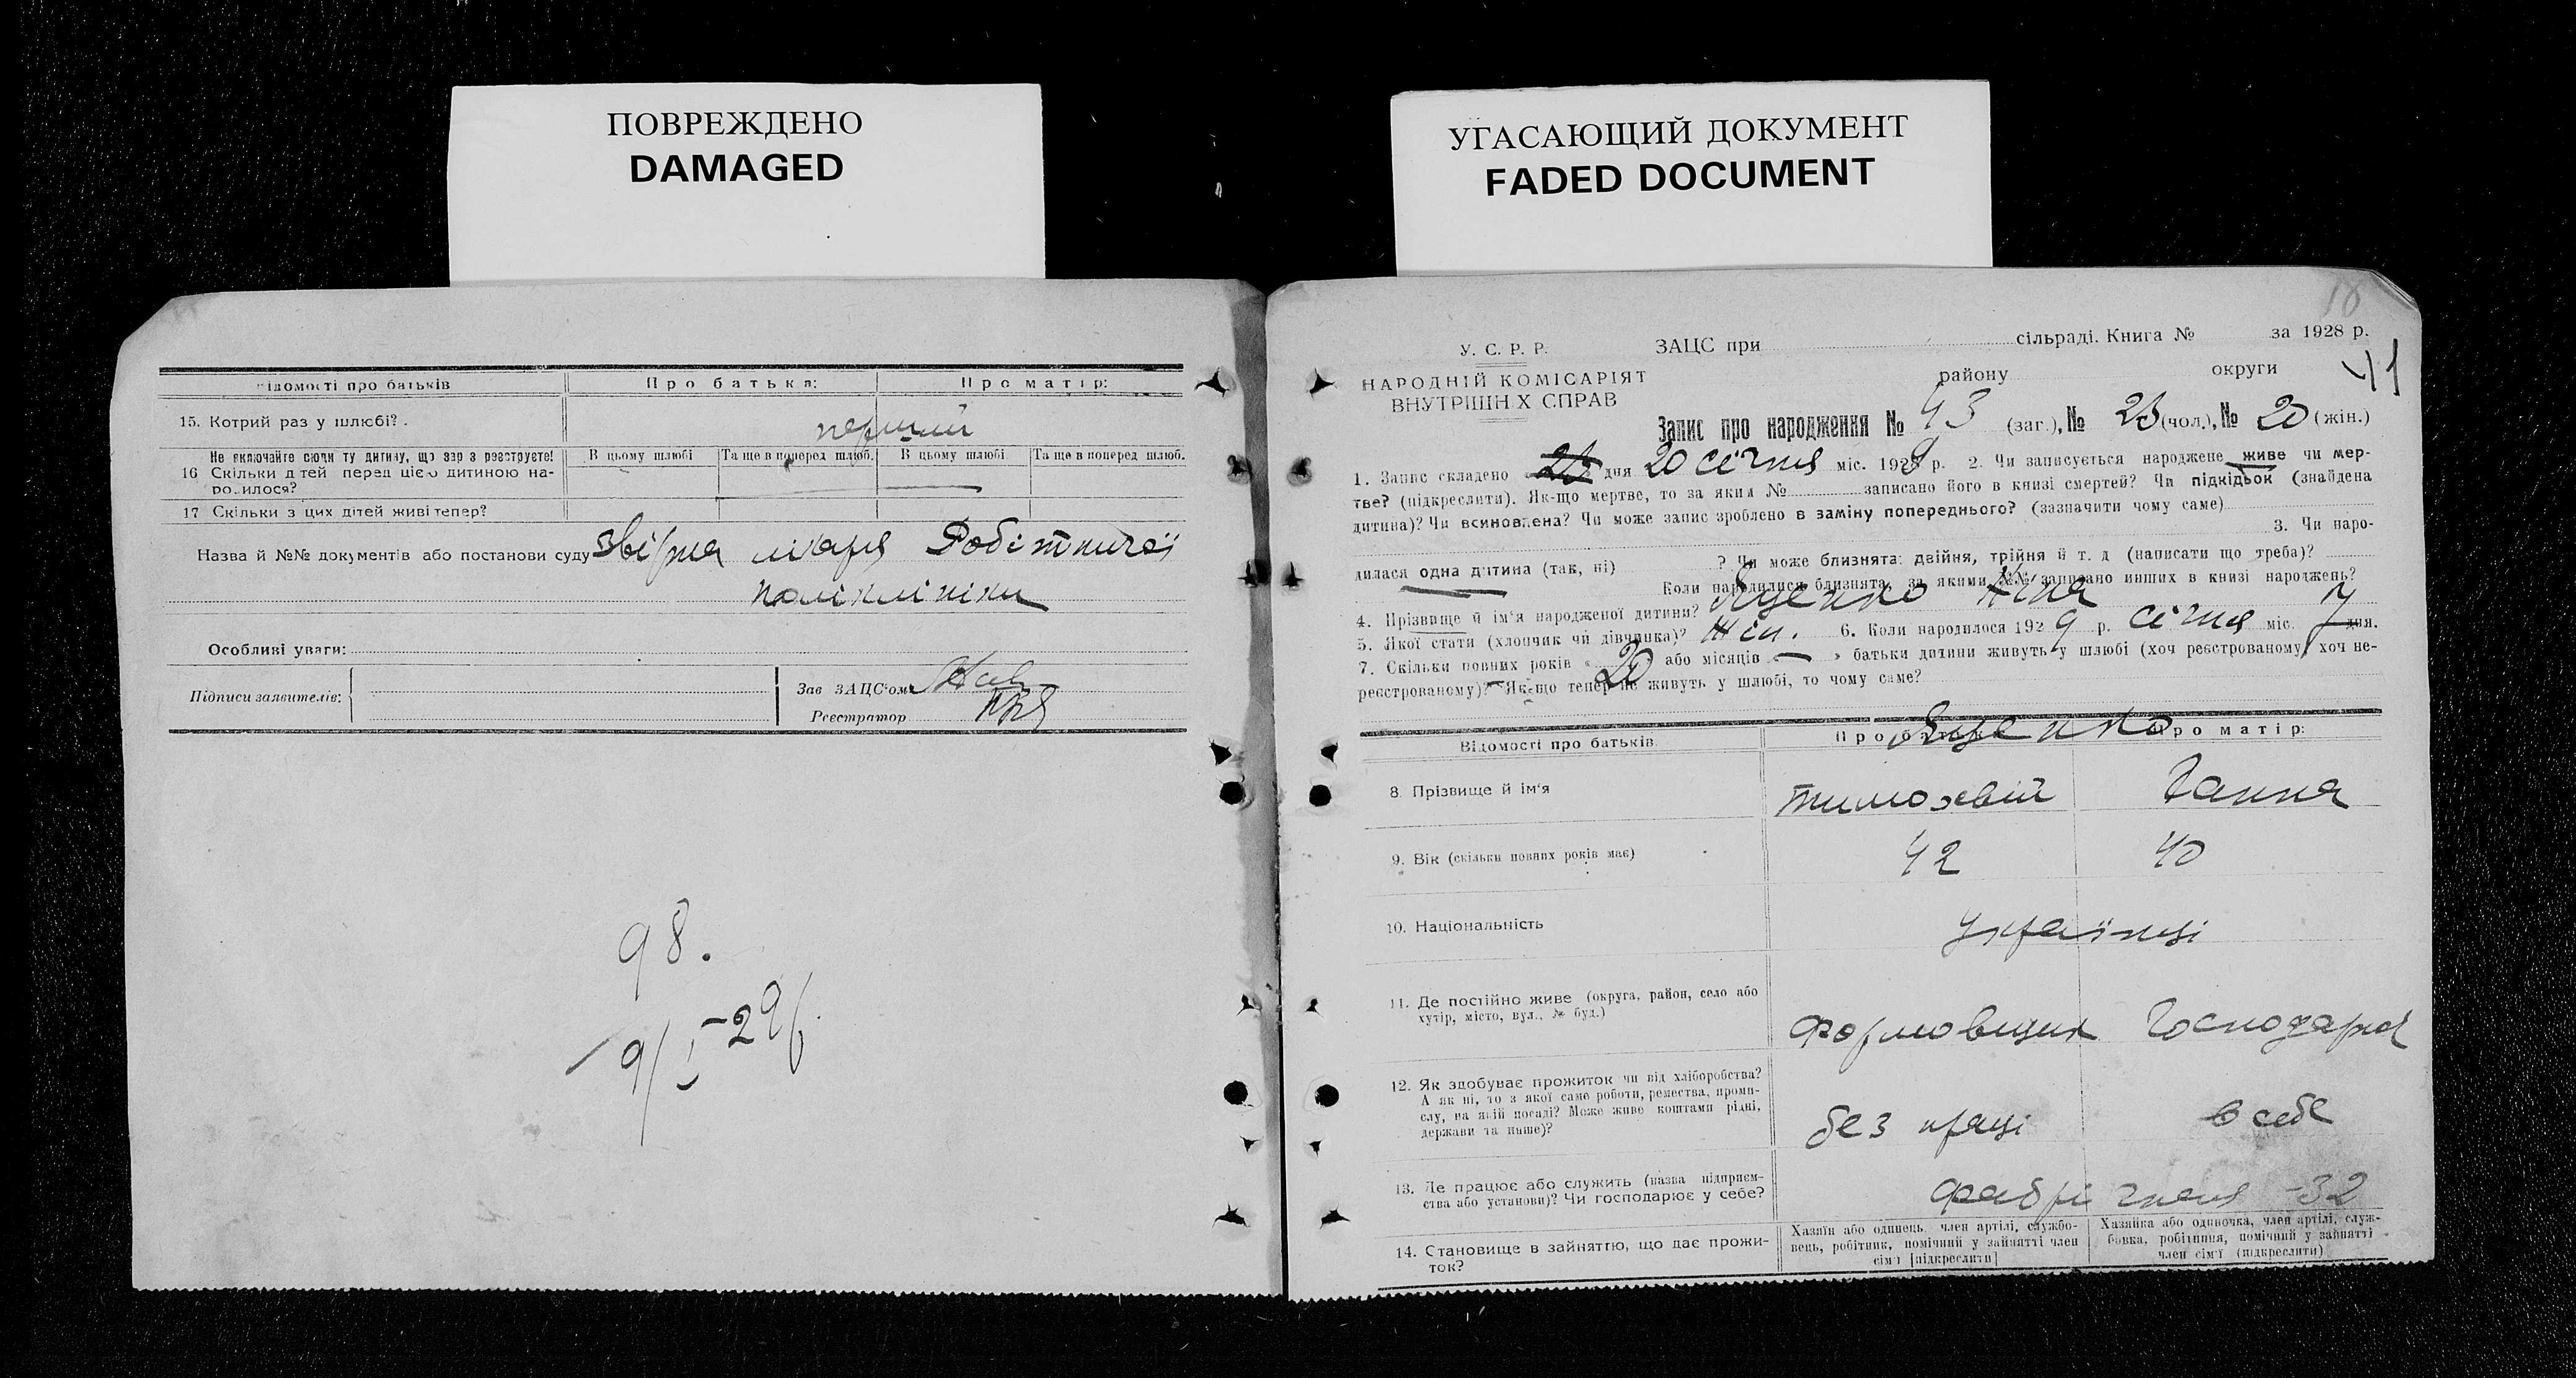 ПОВРЕЖДЕНО
DAMAGED
УГАСАЮЩИЙ ДОКУМЕНТ
FADED DOCUMENT
Відомості про батьків
Про батька:
Про матір:
15. Котрий раз у шлюбі?
перший
Не включайте сюди ту дитину, що зараз реєструєте!
16 Скільки дітей перед цією дитиною народилося?
В цьому шлюбі
Та ще в поперед шлюб.
В цьому шлюбі
Та ще в поперед шлюб.
17 Скільки з цих дітей живі тепер?
Назва й №№ документів або постанови суду звірка лікаря Робітничої
поліклініки
Особливі уваги:
Підписи заявителів:
Зав ЗАЦС'ом
Реєстратор
98.
9/I-29р.
18
У. С. Р. Р.
НАРОДНІЙ КОМІСАРІЯТ
ВНУТРІШНІХ СПРАВ
ЗАЦС при сільраді. Книга № за 1928 р.
району округи 41
Запис про народження № 43 (заг.), № 23 (чол.), № 20 (жін.)
1. Запис складено дня 20 січня міс. 1929 р. 2. Чи записується народжене живе чи мер-
тве? (підкреслити). Як-що мертве, то за яким № записано його в книзі смертей? Чи підкідьок (знайдена
дитина)? Чи всиновлена? Чи може запис зроблено в заміну попереднього? (зазначити чому саме)
3. Чи наро-
дилася одна дитина (так, ні) ? Чи може близнята: двійня, трійня й т. д (написати що треба)?
Коли народилися близнята, за якими №№ записано инших в книзі народжень?
4. Прізвище й ім'я народженої дитини? Яценко Ніна
5. Якої стати (хлопчик чи дівчинка)? жін. 6. Коли народилося 1929 р. січня міс. 7 дня.
7. Скільки повних років « 20 або місяців — » батьки дитини живуть у шлюбі (хоч реєстрованому, хоч не-
реєстрованому)? Як-що тепер не живуть у шлюбі, то чому саме?
Відомості про батьків
Про батька
Про матір:
Яценко
8. Прізвище й ім'я
Тимохвій
Ганна
9. Вік (скільки повних років має)
42
40
10. Національність
українці
11. Де постійно живе (округа, район, село або
хутір, місто, вул., № буд.)
Формовщик
Господарка
12. Як здобуває прожиток чи від хліборобства?
А як ні, то з якої саме роботи, ремества, проми-
слу, на якій посаді? Може живе коштами рідні,
держави та инше)?
без праці
в себе
13. Де працює або служить (назва підприєм-
ства або установи)? Чи господарює у себе?
-32
14. Становище в зайняттю, що дає прожи-
ток?
Хазяїн або одинець, член артілі, службо-
вець, робітник, помічний у зайнятті член
сім'ї [підкреслити]
Хазяйка або одиночка, член артілі, служ-
бовка, робітниця, помічний у зайнятті
член сім'ї (підкреслити)